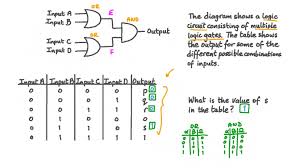 OR
Input A
E
Input B
AND
Output
Input C
OR
Input D
F
The diagram shows a logic
circuit consisting of multiple
logic gates. The table shows
the output for some of the
different possible combinations
of inputs.
Input A Input B Input C Input D Output
0 0 0 0 p 0
0 0 0 1 q 0
0 0 1 1 r 0
0 1 1 1 s 1
What is the value of s
in the table? 1
OR AND